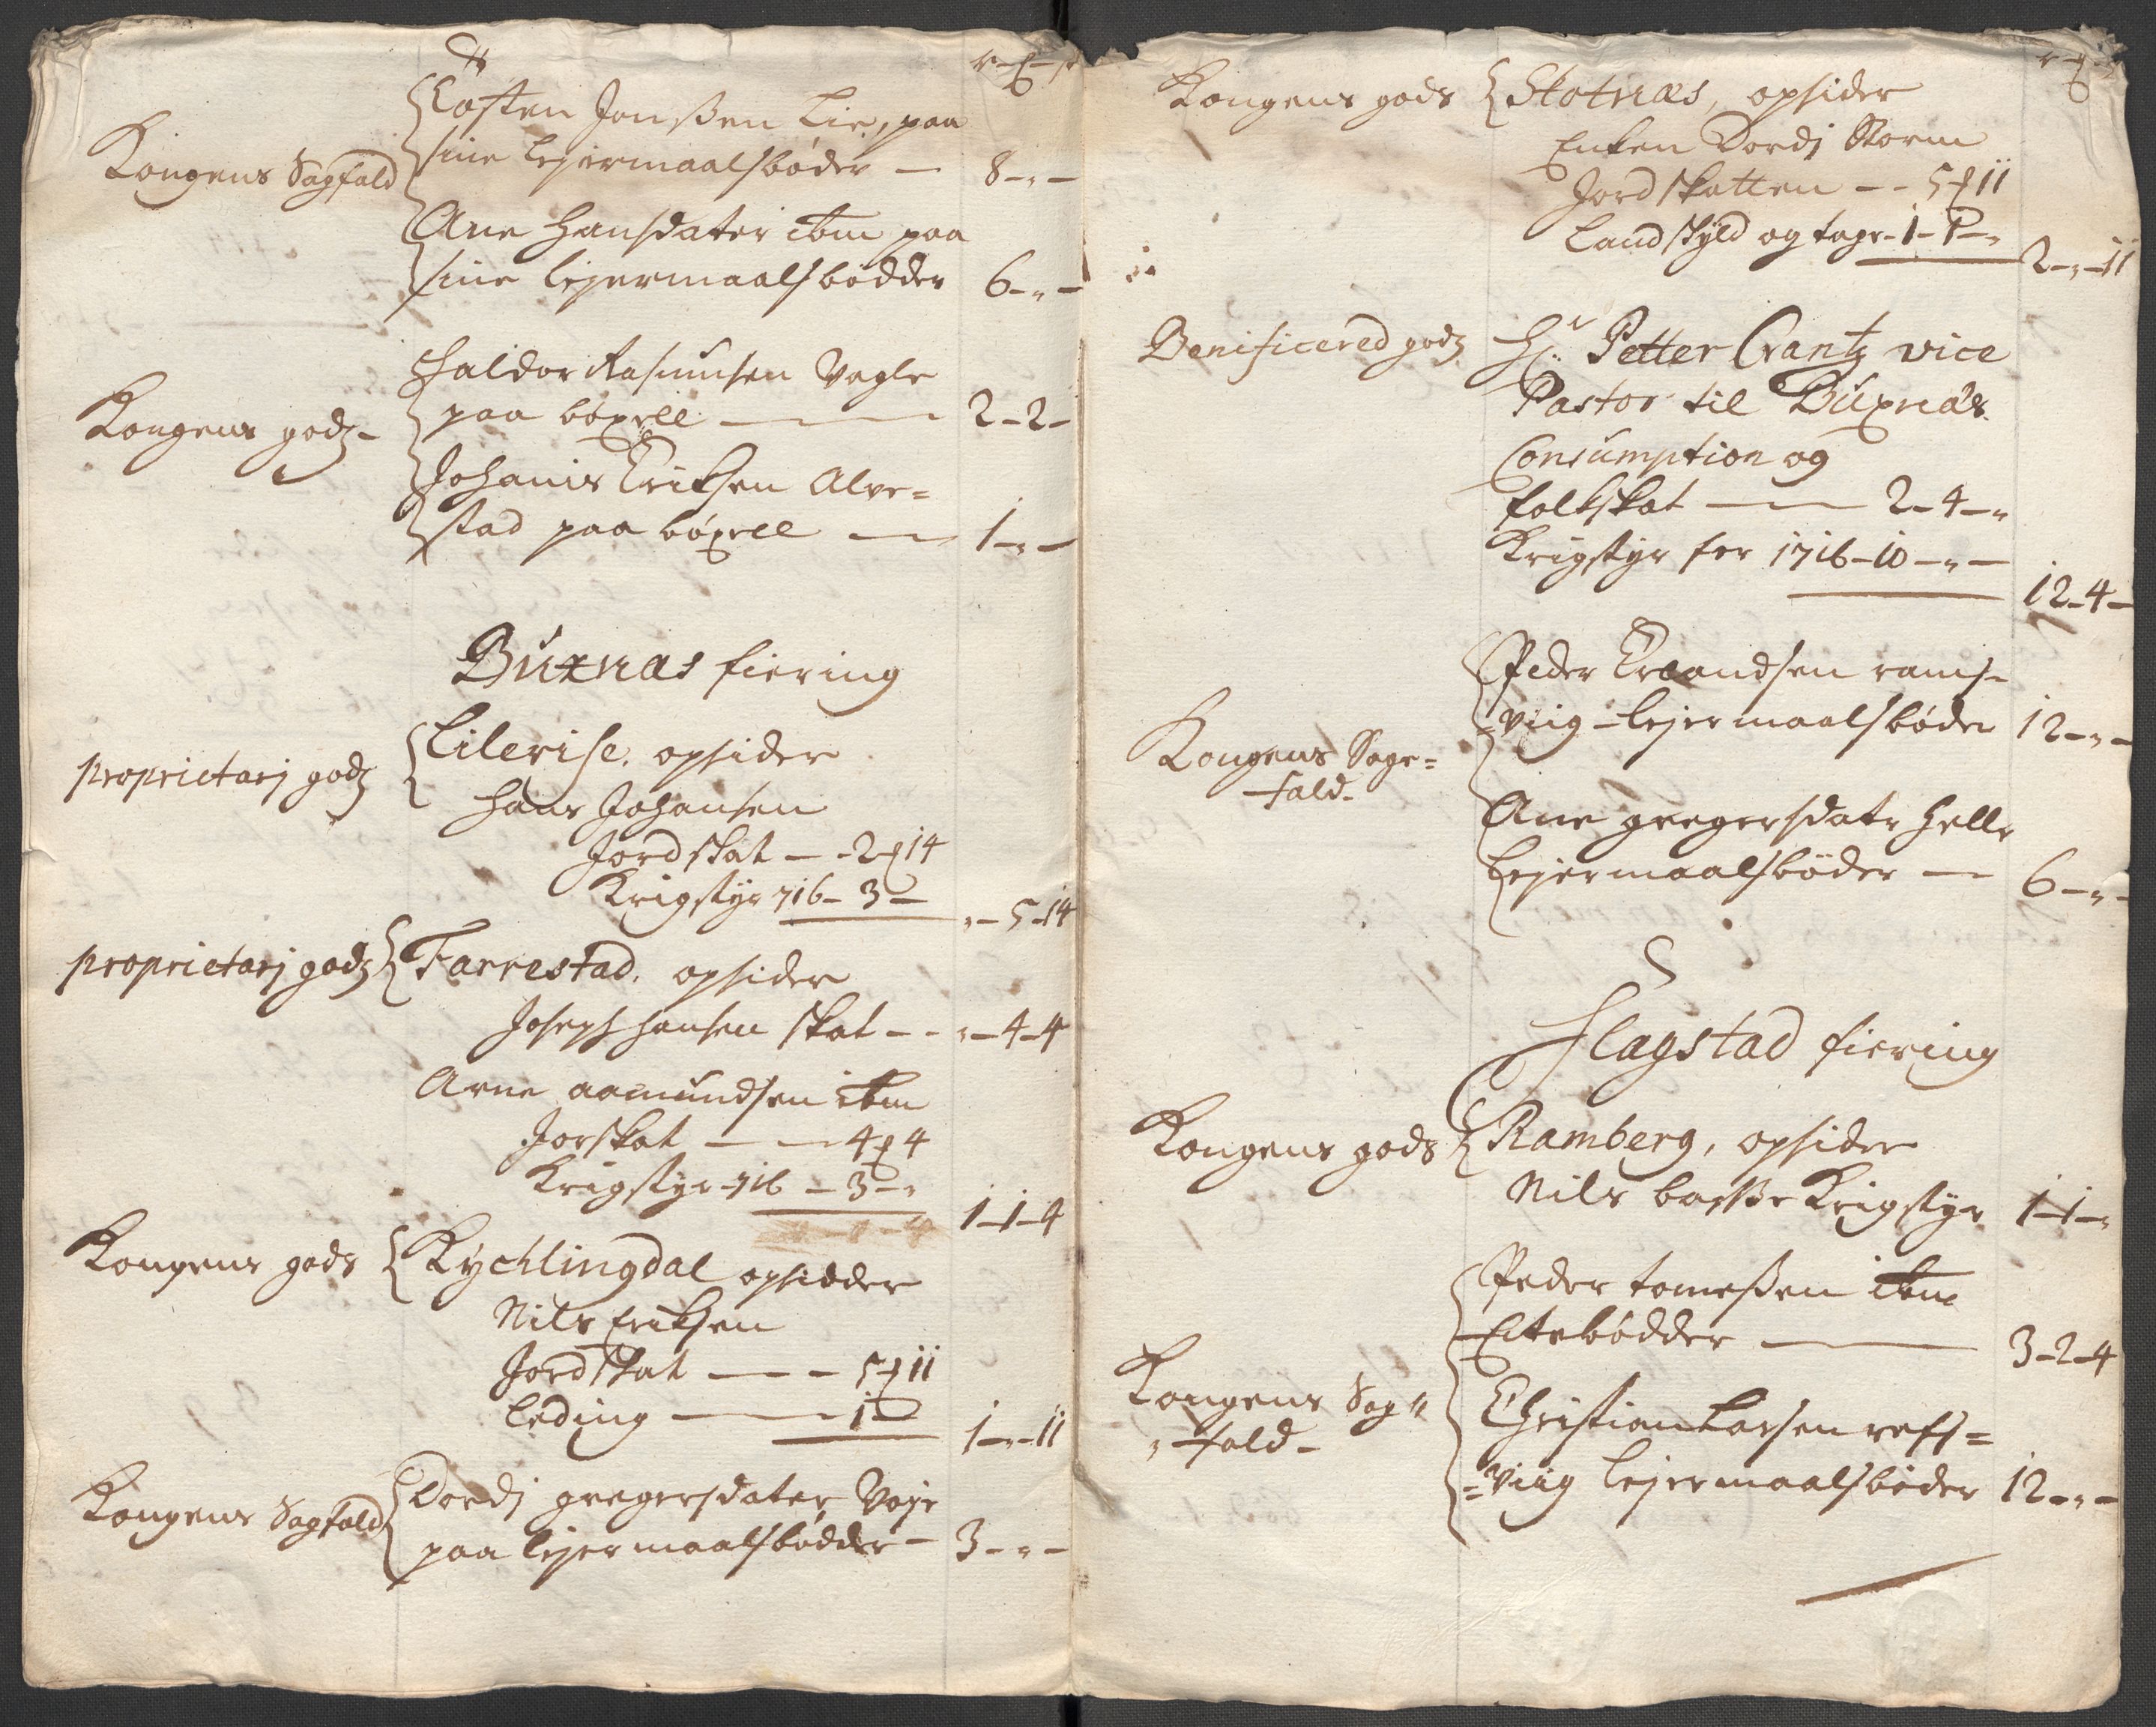 Kongens Sagfald
Tosten Jonßen Lie, paa
sine lejermaalsbøder — 8 - „ -
Ane Hansdater ibm paa
sine lejermaalsbødder 6 - „ -
Kongens godz -
Haldor Rasmusen Vagle
paa bøxell — 2 - 2 -
Johanis Eriksen Alve=
stad paa bøxell — 1 - „ -
Buxnæs fiering
proprietarj godz
Lilerise, opsider
Hans Johansen
Jordskat — - 2 ꝑ 14
Krigstyr 716 - 3 —
„ - 5 - 14
proprietarj godz
Farrestad, opsider
Joseph Hansen skat - - „ - 4 - 4
Arne aamundsen ibm
Jorskat — — 4 ꝑ 4
Krigstyr 716 - 3 - „
1 - 1 - 4
Kongens gods
Kychlingdal opsidder
Nils Eriksen
Jordskat — - 5 ꝑ 11
Leding — 1 —
1 - „ - 11
Kongens Sagfald
Dordj gregersdater Voje
paa lejermaalsbødder - 3 - „ -
Kongens gods
Skotnæs, opsider
Enken Dordj Storm
Jordskatten - - 5 ꝑ 11
Landskyld og tage - 1 - P - „
2 - „ - 11
Benificered godz
Hr: Petter Crantz vice
Pastor til Buxnæs
Consumption og
folkskat — 2 - 4 - „
Krigstyr for 1716 - 10 - „ -
12 - 4 -
Kongens Sage=
fald -
Peder Erlandsen rams-
-Viig - lejermaalsbøder 12 - „ -
Ane gregersdatr Helle
Lejermaalsbøder — 6 - „ -
Flagstad fiering
Kongens gods
Ramberg, opsider
Nils basße Krigstyr 1 - 1 - „
Kongens Sag„
„ fald -
Peder tomeßen ibm
bødder — 3 - 2 - 4
Christian Larsen refs=
=Viig lejermaalsbøder 12 - „ -